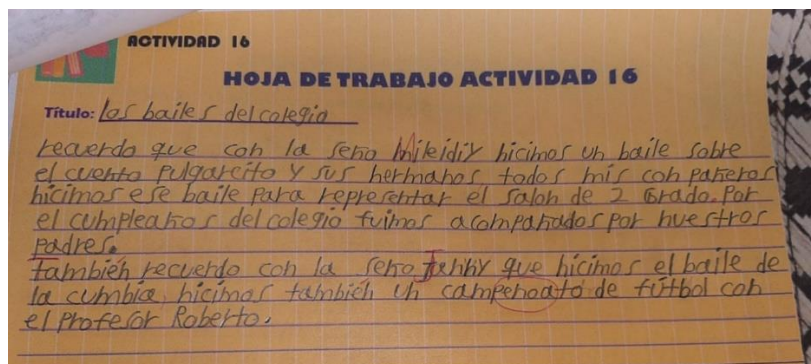 ACTIVIDAD 16
HOJA DE TRABAJO ACTIVIDAD 16
Título: los bailes del colegio
recuerdo que con la seño Mileidiy hicimos un baile sobre
el cuento pulgarcito y sus hermanos todos mis compañeros
hicimos ese baile para representar el salon de 2 Grado. Por
el cumpleaños del colegio fuimos acompañados por nuestros
padres.
también recuerdo con la seño que hicimos el baile de
la cumbia, hicimos también un campenoato de fútbol con
el profesor Roberto.